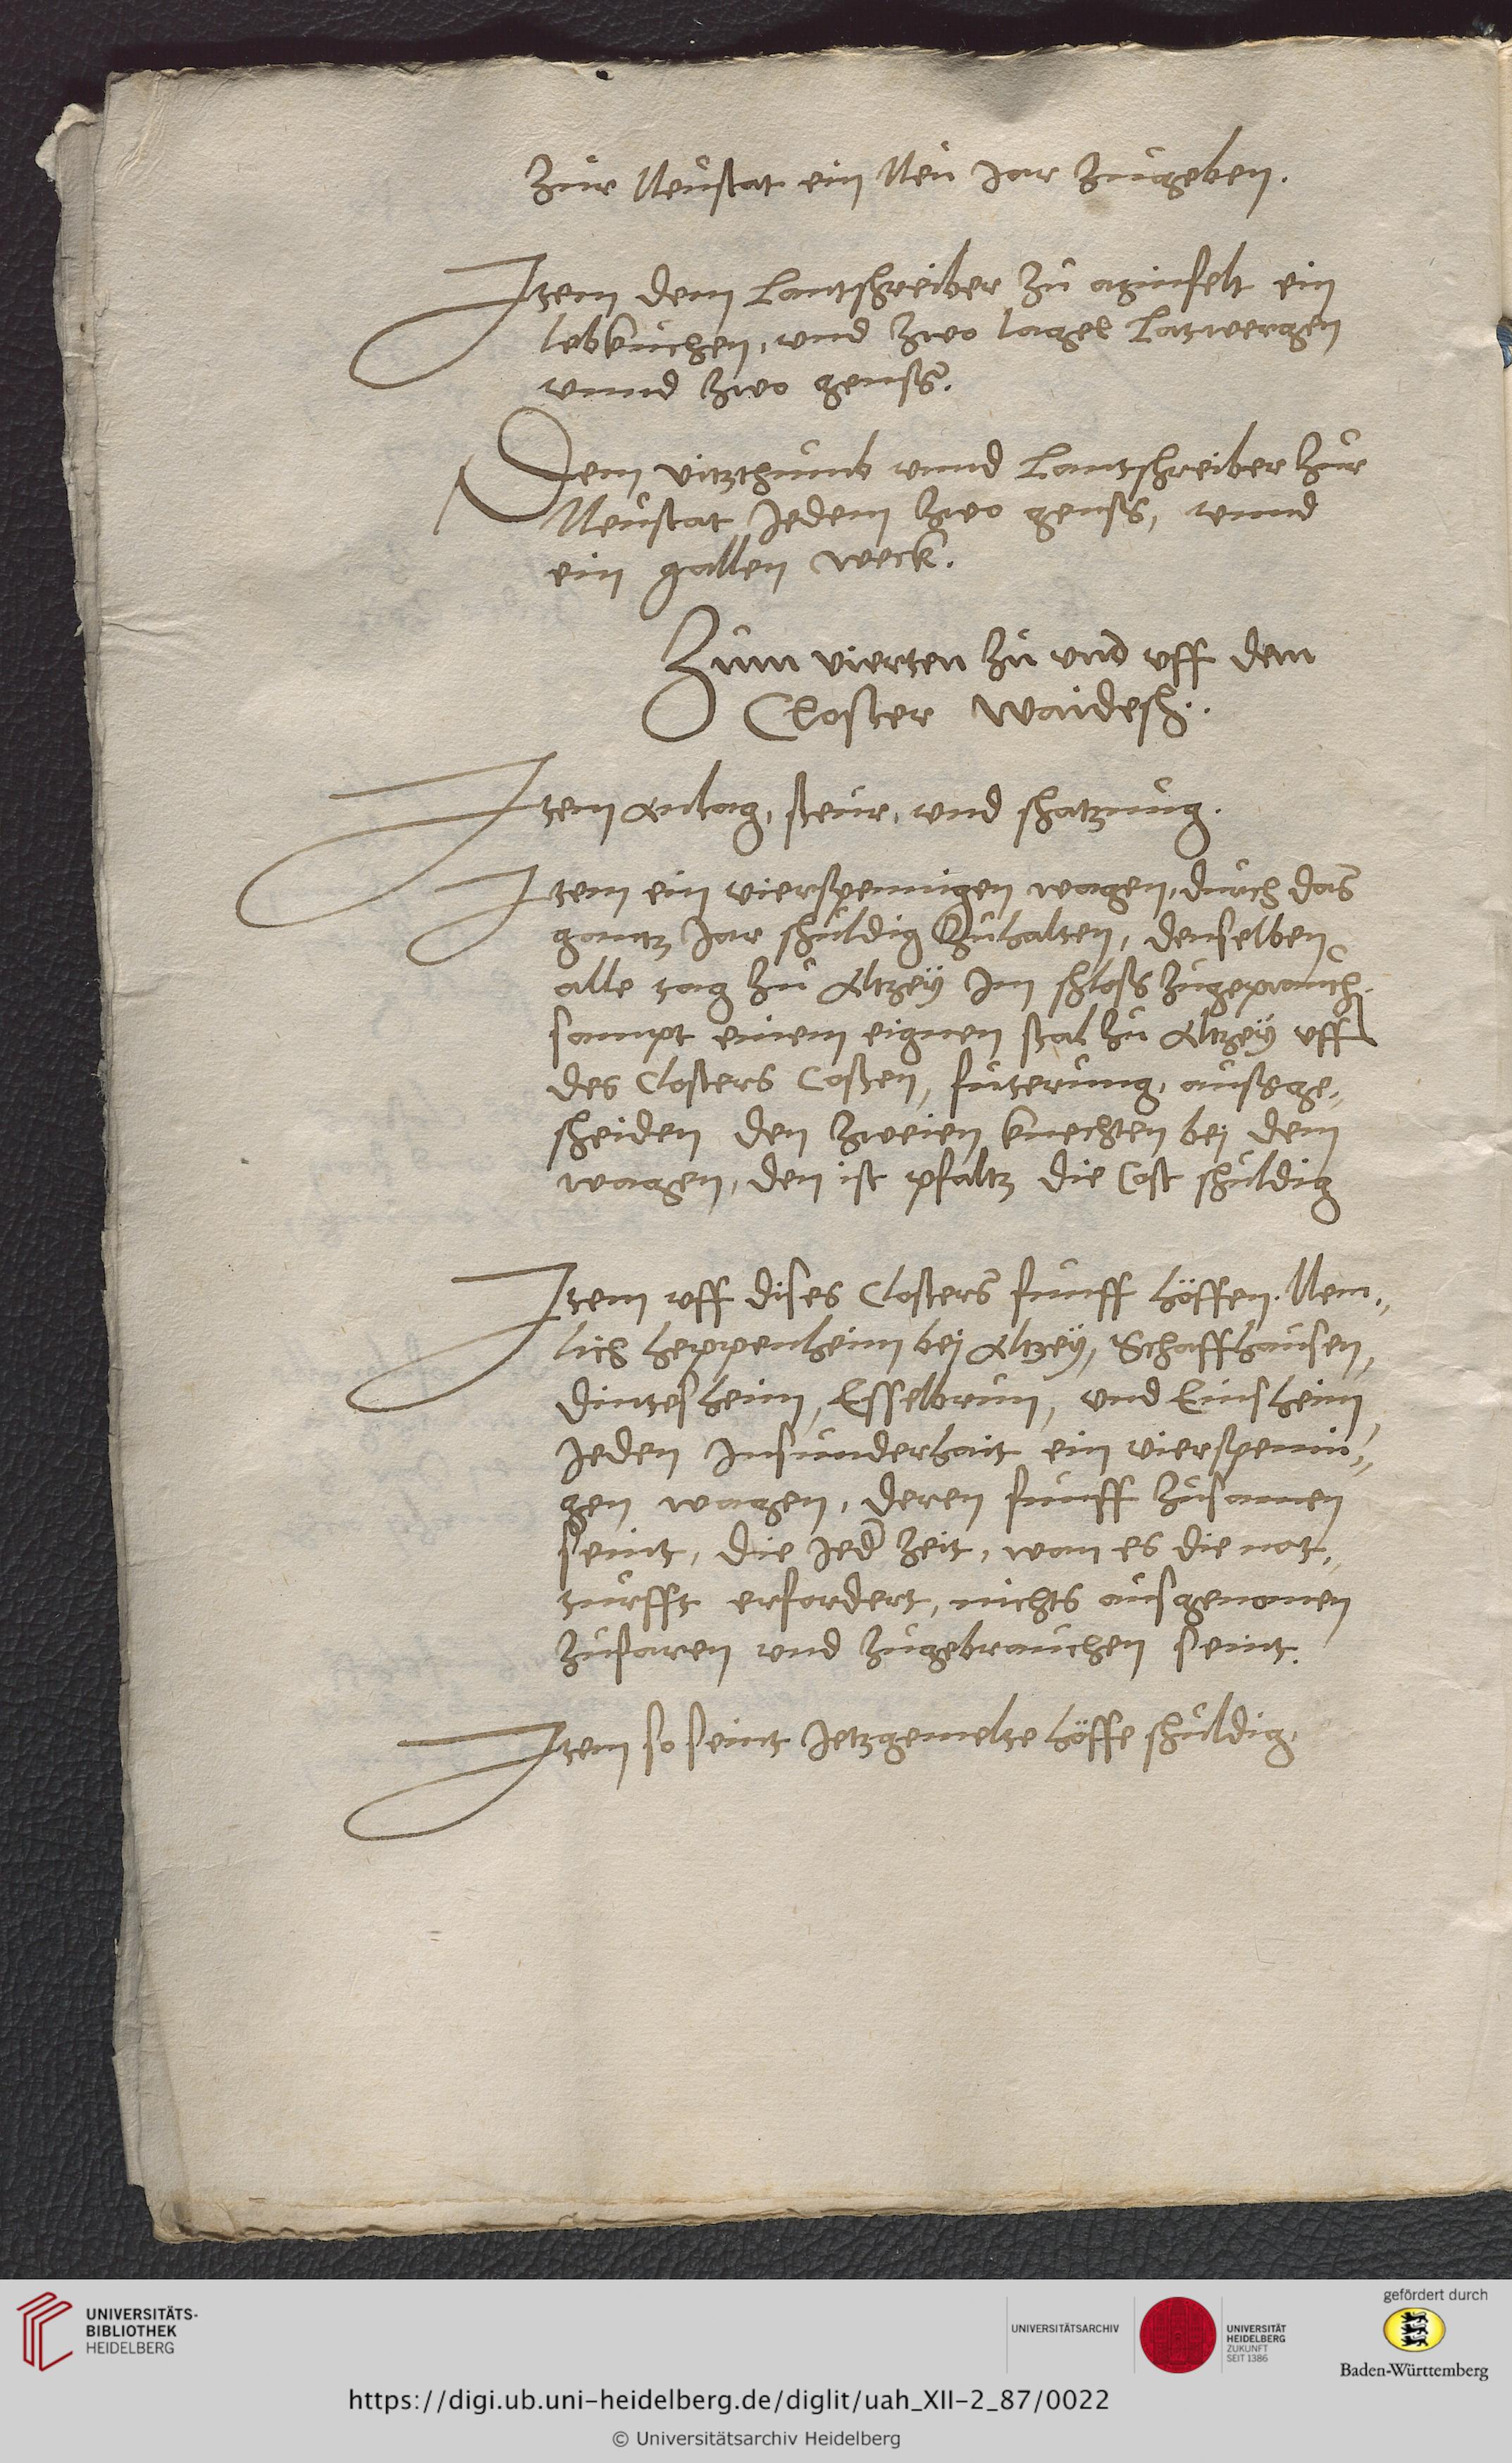 Zur Neustat ein Neu Jar zugeben.
Item dem Lantschreiber zu ein
lebkuchen, und zwo lagel Latwergen
unnd zwo genß.
Dem vitzthumb unnd Lantschreiber zur
Neustat Jedem zwo genß, unnd
ein gallen weck.
Zum vierten zu und uff dem
Closter Waidesh..
Item Anlag, steur, und schatzung.
Item ein vierspennigen wagen, durch das
gantz Jar schuldig zuhalten, denselben
alle tag zu Altzey Im schloß zugeprauch.
sampt einem eignen stal zu Altzey uff
des Closters Costen, futerung, aussge,,
scheiden den zweien knechten bej dem
wagen, den ist pfaltz die Cost schuldig
Item uff dises Closters funff höffen. Nem,,
lich Heppenheim bej Altzey, Schaffhausen,
Dintesheim, Esselbrun, und Einsheim,
Jeden Insunderhait ein vierspenni,,
gen wagen, deren funff zusamen
seint, die Jed zeit, wan es die not,,
turfft erfordert, nichts ausgenomen
zufaren und zugebrauchen seint.
Item so seint Jetzgemelte höffe schuldig,
UNIVERSITÄTS-
BIBLIOTHEK
HEIDELBERG
UNIVERSITÄTSARCHIV
UNIVERSITÄT
HEIDELBERG
ZUKUNFT
SEIT 1386
gefördert durch
Baden-Württemberg
https://digi.ub.uni-heidelberg.de/diglit/uah_XII-2_87/0022
© Universitätsarchiv Heidelberg